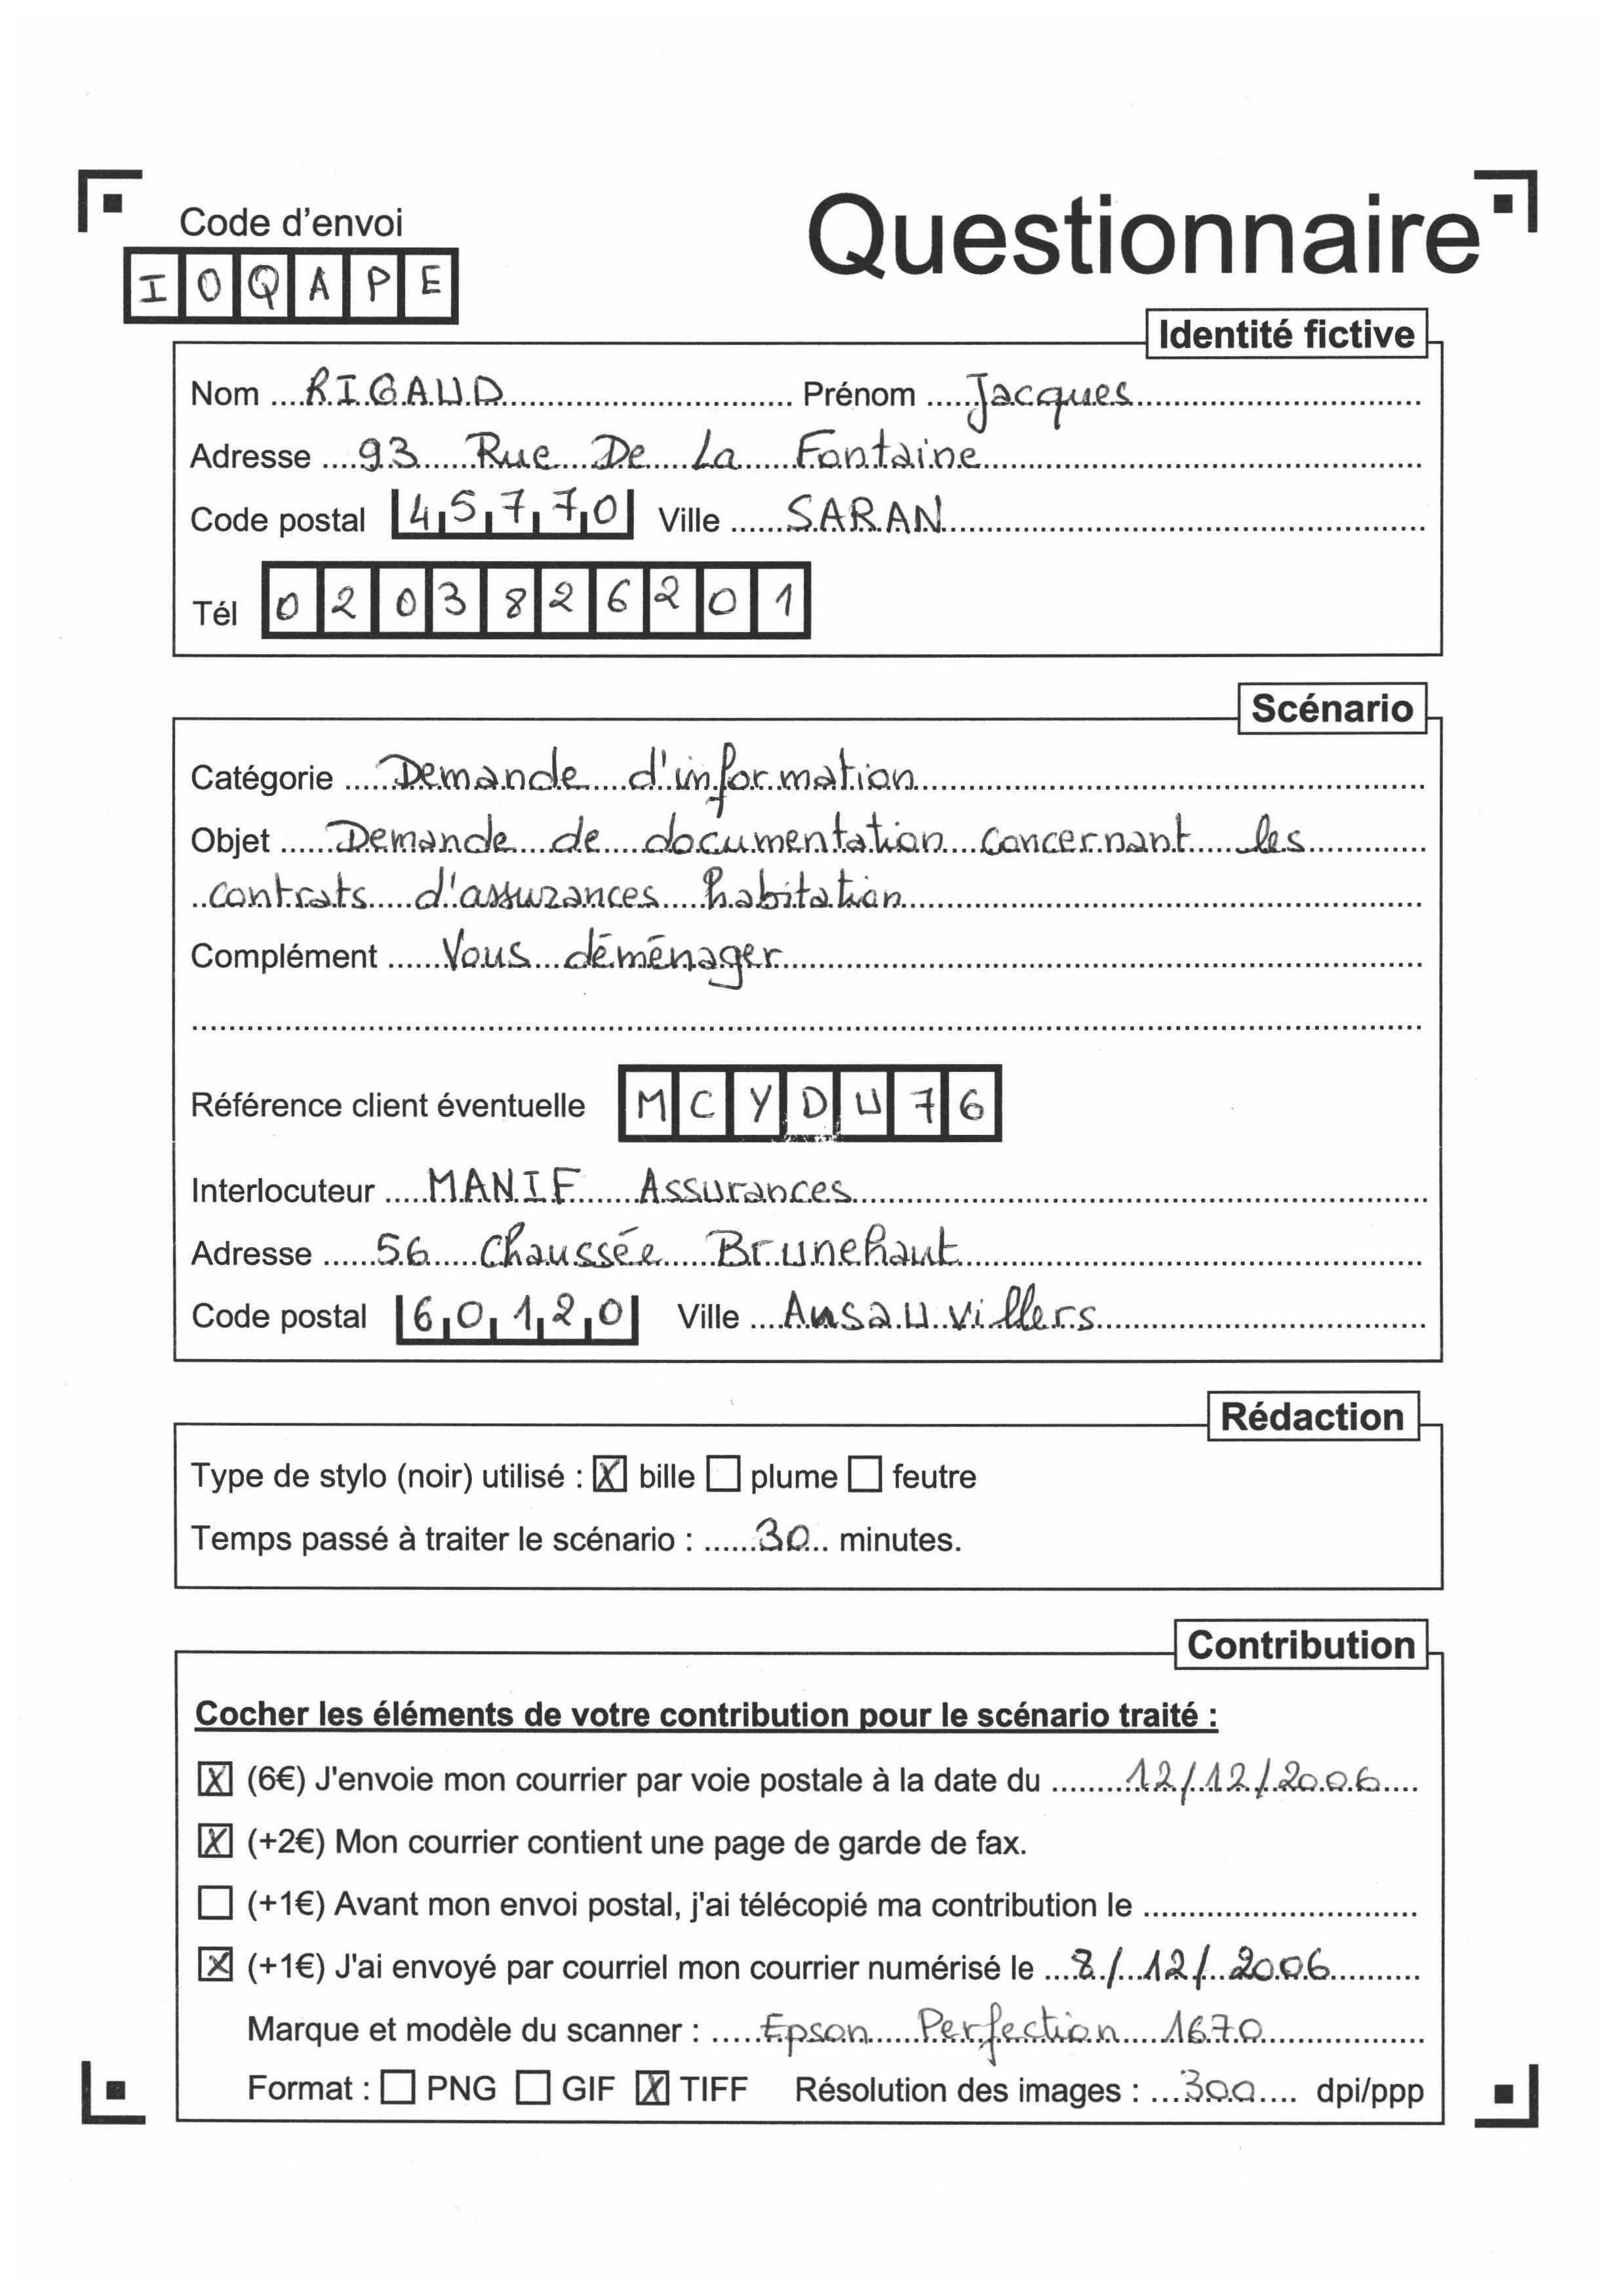 Code d'envoi
Questionnaire
IOQAPE
Identité fictive
Nom RIGAUD Prénom Jacques
Adresse 93 Rue De La Fontaine
Code postal 45770 Ville SARAN
Tél 0203826201
Scénario
Catégorie Demande d'information
Objet Demande de documentation concernant les
contrats d'assurances habitation
Complément Vous déménager
Référence client éventuelle MCYDU76
Interlocuteur MANIF Assurances
Adresse 56 Chaussée Brunehaut
Code postal 60120 Ville Ansauvillers
Rédaction
Type de stylo (noir) utilisé : ☒ bille ☐ plume ☐ feutre
Temps passé à traiter le scénario : 30 minutes.
Contribution
Cocher les éléments de votre contribution pour le scénario traité :
☒ (6€) J'envoie mon courrier par voie postale à la date du 12/12/2006
☒ (+2€) Mon courrier contient une page de garde de fax.
☐ (+1€) Avant mon envoi postal, j'ai télécopié ma contribution le
☒ (+1€) J'ai envoyé par courriel mon courrier numérisé le 8/12/2006
Marque et modèle du scanner : Epson Perfection 1670
Format : ☐ PNG ☐ GIF ☒ TIFF Résolution des images : 300 dpi/ppp